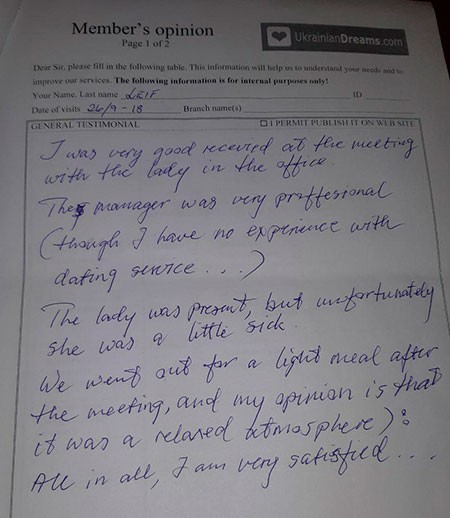 Member's opinion
Page 1 of 2
UkrainianDreams.com
Dear Sir, please fill in the following table. This information will help us to understand your needs and to
improve our services. The following information is for internal purposes only!
Your Name, Last name LEIF ID
Date of visits 26/9-18 Branch name(s)
GENERAL TESTIMONIAL I PERMIT PUBLISH IT ON WEB SITE
I was very good received at the meeting
with the lady in the office.
The manager was very proffesional
(though I have no experience with
dating service . . .)
The lady was present, but unfortunately
she was a little sick.
We went out for a light meal after
the meeting, and my opinion is that
it was a relaxed atmosphere):
All in all, I am very satisfied . . .